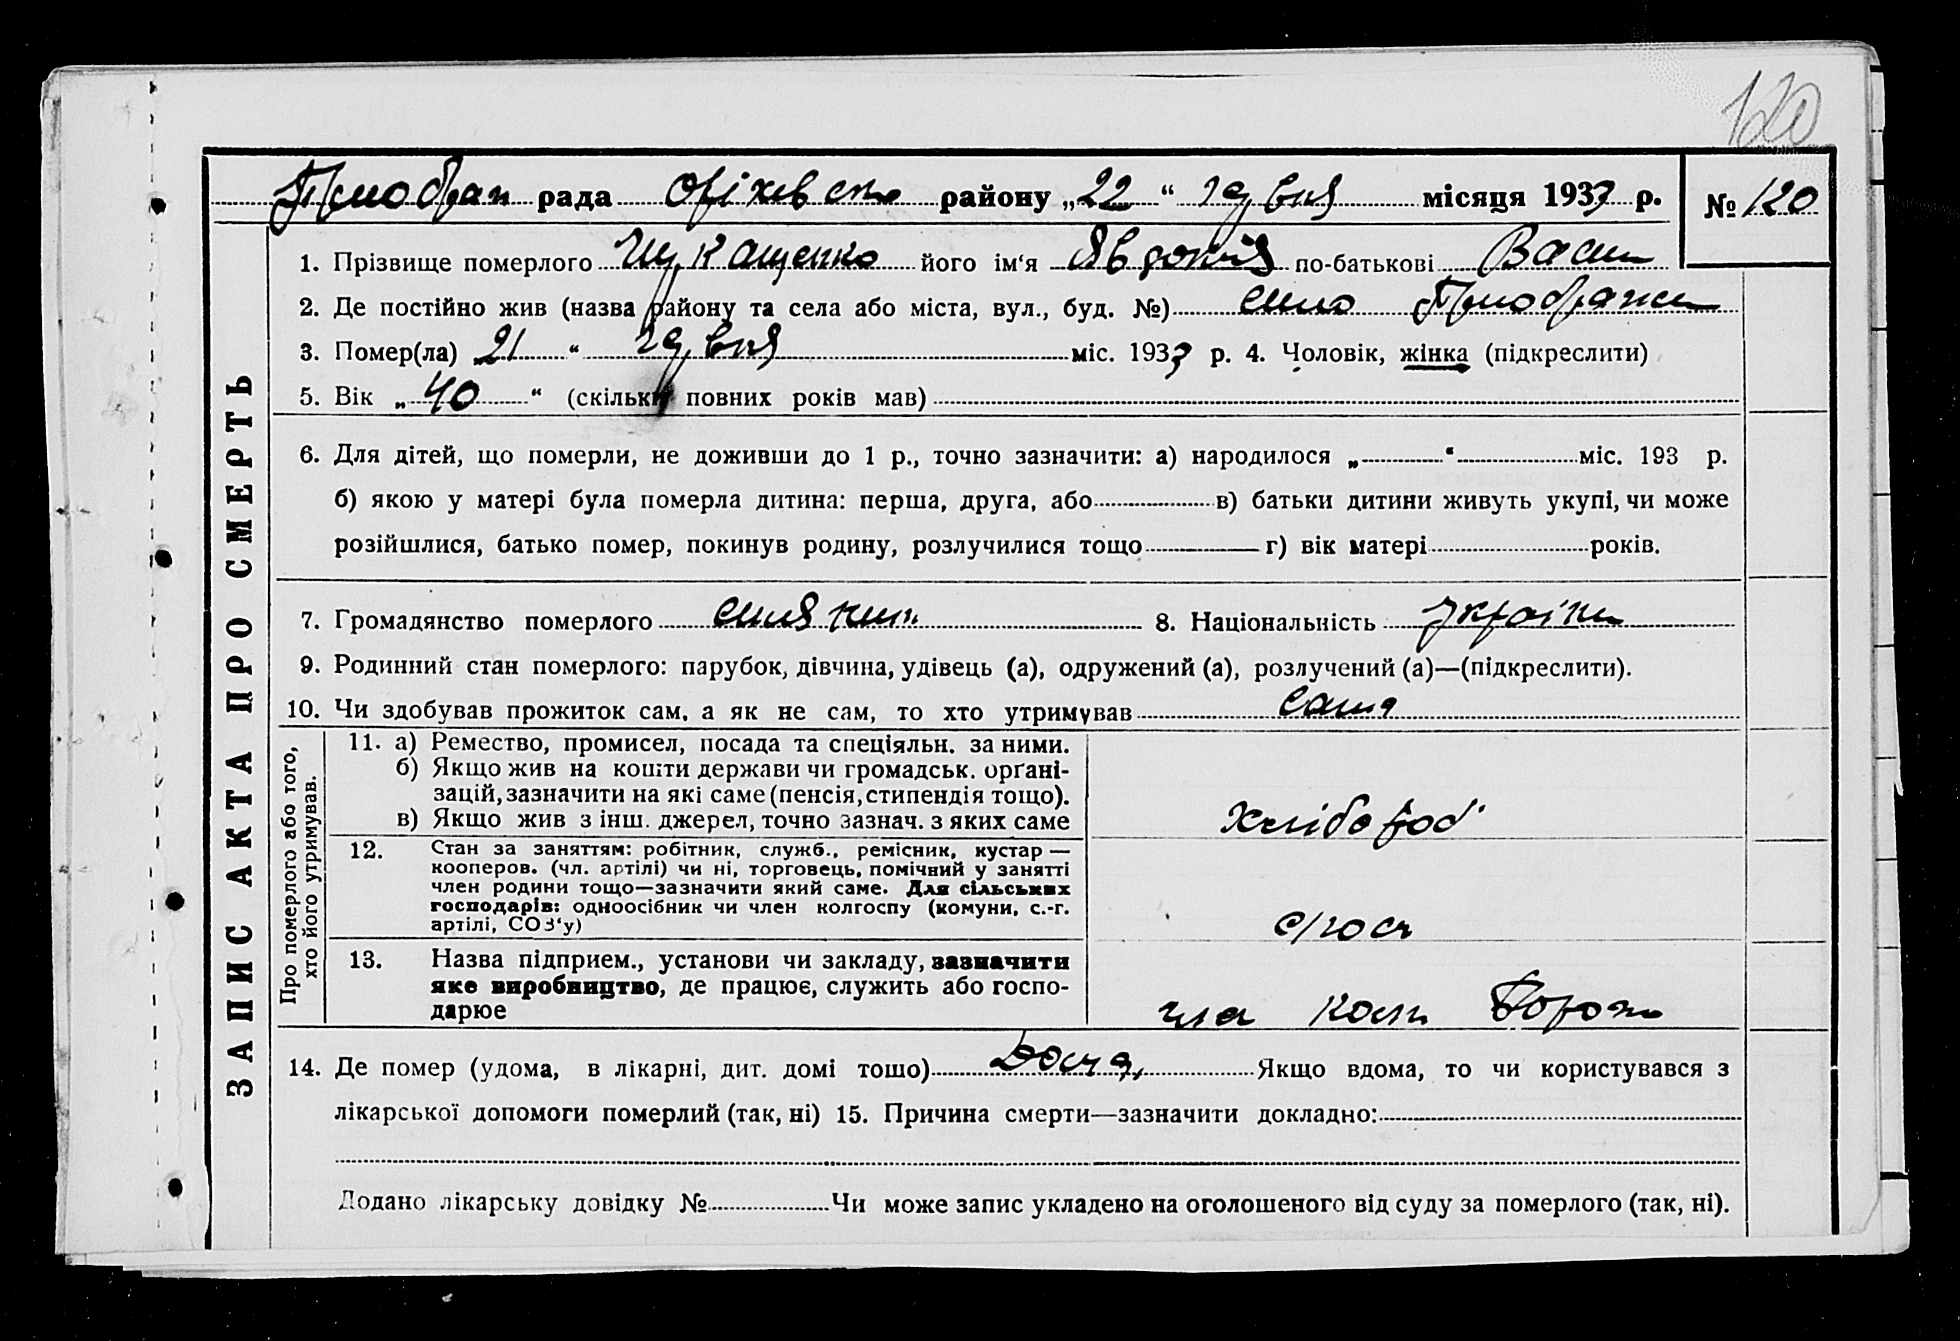 120
Преображ рада Оріхівсько району „22“ червня місяця 1933 р. № 120
1. Прізвище померлого його ім‘я Явдокія по-батькові Васил
2. Де постійно жив (назва району та села або міста, вул., буд. №) село Преображен
3. Помер(ла) 21 “ червня міс. 1933 р. 4. Чоловік, жінка (підкреслити)
5. Вік „ 40 “ (скільки повних років мав)
6. Для дітей, що померли, не доживши до 1 р., точно зазначити: а) народилося „ “ міс. 193 р.
б) якою у матері була померла дитина: перша, друга, або в) батьки дитини живуть укупі, чи може
розійшлися, батько помер, покинув родину, розлучилися тощо г) вік матері років.
7. Громадянство померлого селянин 8. Національність україн
9. Родинний стан померлого: парубок, дівчина, удівець (а), одружений (а), розлучений (а)—(підкреслити).
10. Чи здобував прожиток сам, а як не сам, то хто утримував сама
ЗАПИС АКТА ПРО СМЕРТЬ
Про померлого або того,
хто його утримував.
11. а) Ремество, промисел, посада та спеціяльн. за ними.
б) Якщо жив на кошти держави чи громадськ. орґані-
зацій, зазначити на які саме (пенсія, стипендія тощо).
в) Якщо жив з інш. джерел, точно зазнач. з яких саме
хлібороб
12. Стан за заняттям: робітник, служб., ремісник, кустар—
кооперов. (чл. артілі) чи ні, торговець, помічний у занятті
член родини тощо—зазначити який саме. Для сільських
господарів: одноосібник чи член колгоспу (комуни, с.-г.
артілі, СОЗ‘у)
с/госп
13. Назва підприєм., установи чи закладу, зазначити
яке виробництво, де працює, служить або госпо-
дарює
член колг
14. Де помер (удома, в лікарні, дит. домі тошо) Дома Якщо вдома, то чи користувався з
лікарської допомоги померлий (так, ні) 15. Причина смерти—зазначити докладно:
Додано лікарську довідку № Чи може запис укладено на оголошеного від суду за померлого (так, ні).